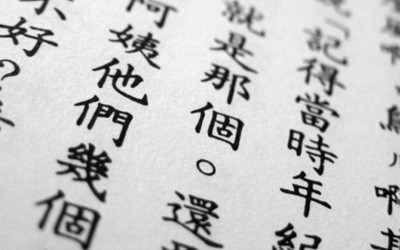 啊
「記得當時年紀
就是那個。還
阿姨他們幾個
不好?